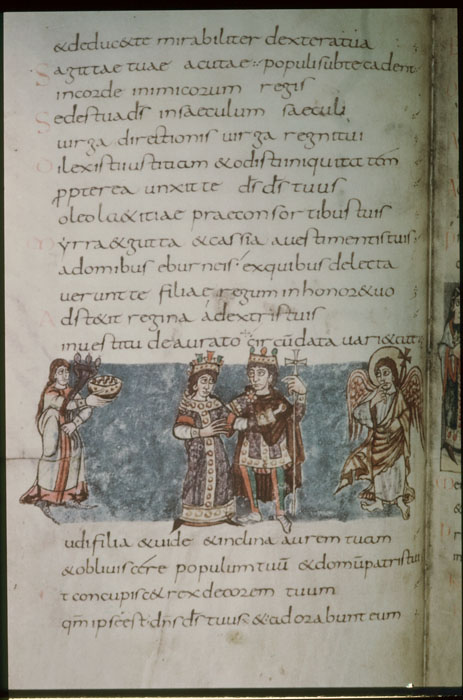 & deduc& te mirabiliter dextera tua
Sagittae tuae acutae populi sub te cadent
in corde inimicorum regis
Sedes tua ds in saeculum saeculi
uirga directionis uirga regni tui
Dilexisti iustitiam & odisti iniquitatem
ppterea unxit te ds ds tuus
oleo l&itiae prae consortibus tuis
Myrra & gutta & cassia a uestimentis tuis
a domibus eburneis ex quibus delecta
uerunt te filiae regum in honore tuo
Adst&it regina a dextris tuis
in uestitu deaurato circudata uari&ate
Audi filia & uide & inclina aurem tuam
& obliuiscere populum tuu & domu patris tui
&concupisc& rex decorem tuum
qm ipse est dns ds tuus & adorabunt eum